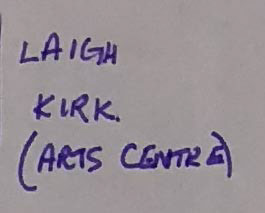 LAIGH
KIRK.
(ARTS CENTRE)